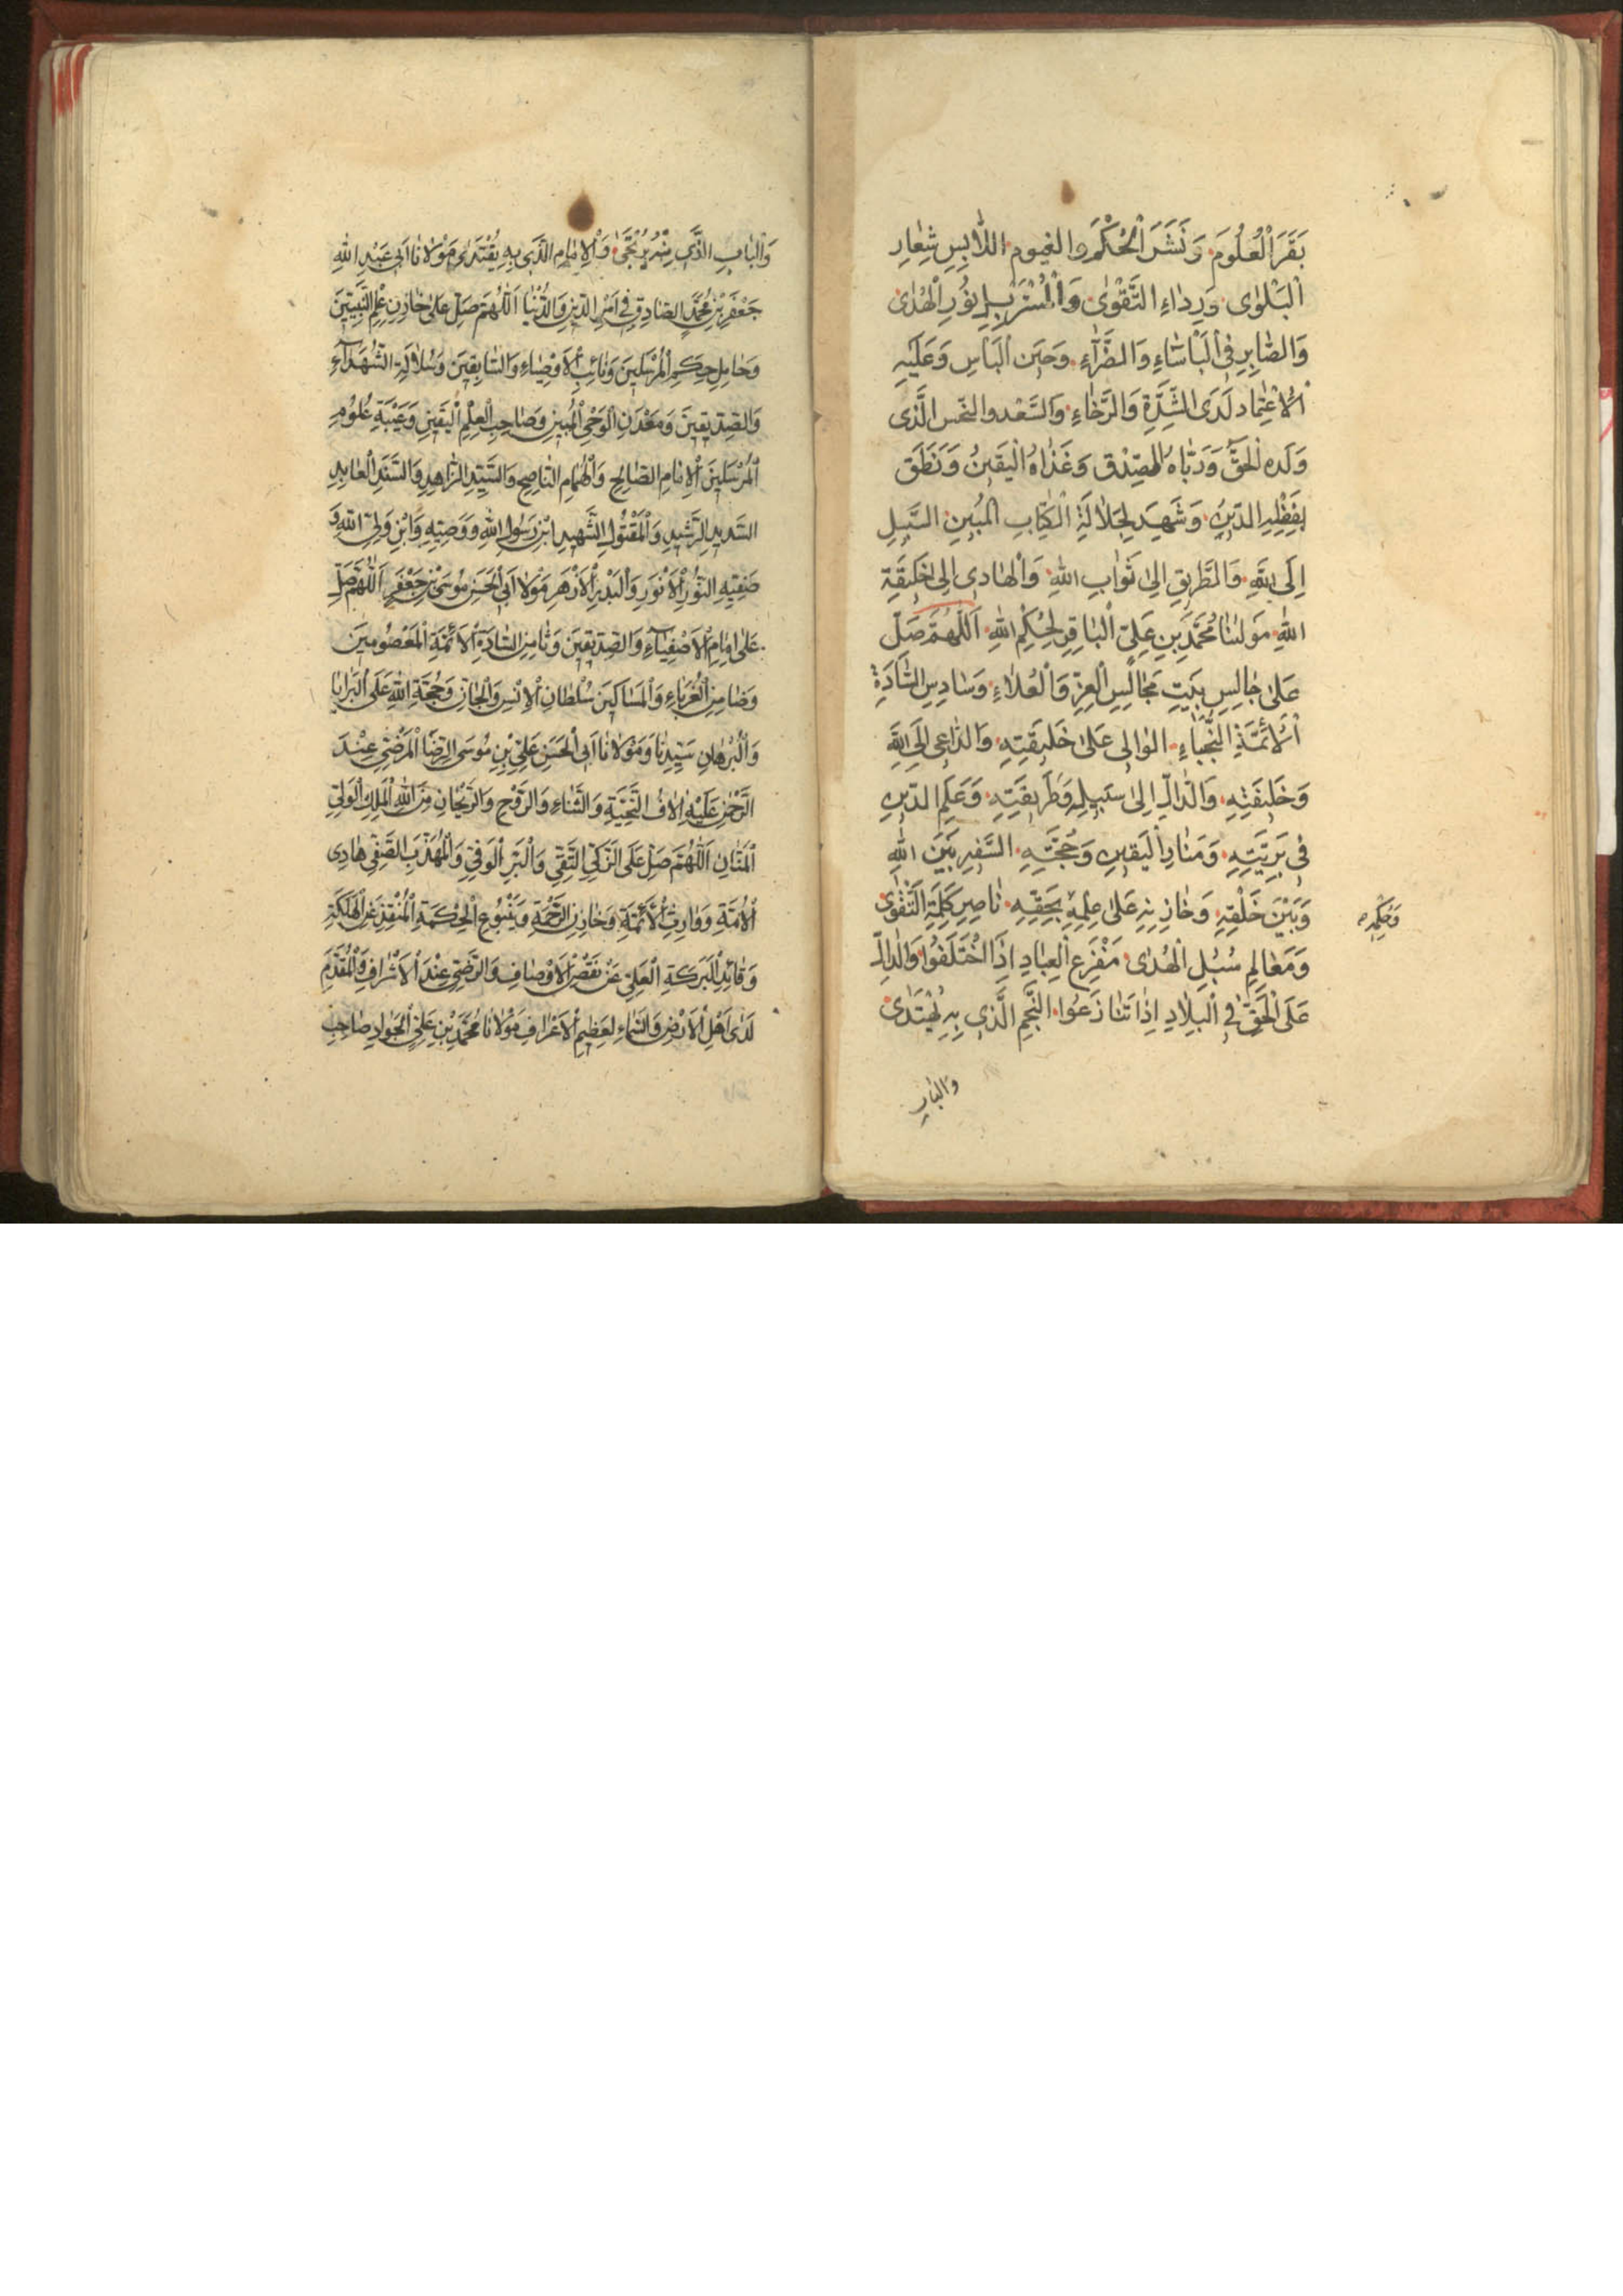 بَقَرَ الْعُلُومَ وَنَشَرَ الْحُكْمَ والغيوم اللّابِسِ شِعارِ
الْبَلْوى وَرِداءِ التَّقْوى وَالْمُتَسَرْبِلِ بِنُورِ الْهُدى
وَالصّابِرِ فِي الْبَأْساءِ وَالضَّرّآءِ وَحينَ الْبَأسِ وَعَلَيْهِ
الْاِعْتِماد لَدَى الشِّدَّةِ وَالرَّخاءِ وَالسَّعْد والنحس الَّذى
وَلَده الْحَقُّ وَرَبّاهُ الصِّدْق وَغَذاهُ الْيَقينُ وَنَطَقَ
بِفَضْلِهِ الدّينُ وَشَهِدَ لِجَلالَةِ الْكِتابِ الْمُبينِ السَّبيلِ
اِلَى اللهِ وَالطَّريقِ اِلى ثَوابِ اللهِ وَالْهادى اِلى حَقيقَةِ
اللهِ مولينا مُحَمَّدِ بْنِ عَلِيٍّ الْباقِرِ لِحُكْمِ اللهِ اَللّهُمَّ صَلِّ
عَلى جالِسِ بَيْتِ مَجالِسِ الْعِزِّ وَالْعُلاءِ وَسادِسِ السّادَةِ
الْاَئِمَّةِ النُّجَباءِ الوالى عَلى خَليقَتِهِ وَالدّاعى اِلَى اللهِ
وَخَليفَتِهِ وَالدّالِّ اِلى سَبيلِهِ وَطَريقَتِهِ وَعَلَمِ الدّينِ
فى بَرِيَّتِهِ وَمَنارِ الْيَقينِ وَحُجَّتِهِ السَّفيرِ بَيْنَ اللهِ
وَبَيْنَ خَلْقِهِ وَخازِنِهِ عَلى عِلْمِهِ بِحَقِّهِ ناصِرِ كَلِمَةِ التَّقْوى
وَحِكَمِه
وَمَعالِمِ سُبُلِ الْهُدى مَفْزَعِ الْعِبادِ اِذَا اخْتَلَفُوا وَالدّالِّ
عَلَى الْحَقِّ فِي الْبِلادِ اِذا تَنازَعُوا النَّجْمِ الَّذى بِهِ يُهْتَدى
والباب
وَالْبابِ الَّذى مِنْهُ يُرْتَجى وَالْاِمامِ الَّذى بِهِ يُقْتَدى مَوْلانا اَبى عَبْدِ اللهِ
جَعْفَرِ بْنِ مُحَمَّدٍ الصّادِقِ فى اَمْرِ الدّينِ وَالدُّنْيا اَللّهُمَّ صَلِّ عَلى خازِنِ عِلْمِ النَّبِيّينَ
وَحامِلِ حِكَمِ الْمُرْسَلينَ وَنائِبِ الْاَوْصِياءِ وَالسّابِقينَ وَسُلالَةِ الشُّهَدآءِ
وَالصِّدّيقينَ وَمَعْدَنِ الْوَحْىِ الْمُبينِ وَصاحِبِ الْعِلْمِ الْيَقينِ وَعَيْبَةِ عُلُومِ
الْمُرْسَلينَ الْاِمامِ الصّالِحِ وَالْهُمامِ النّاصِحِ وَالسَّيِّدِ الزّاهِدِ وَالسَّنَدِ الْعابِدِ
السَّديدِ الرَّشيدِ وَالْمَقْتُولِ الشَّهيدِ ابْنِ رَسُولِ اللهِ وَوَصِيِّهِ وَابْنِ وَلِيِّ اللهِ وَ
صَفِيِّهِ النُّورِ الْاَنْوَرِ وَالْبَدْرِ الْاَزْهَرِ مَوْلانا اَبِى الْحَسَنِ مُوسَى بْنِ جَعْفَرٍ اَللّهُمَّ صَلِّ
عَلى اِمامِ الْاَصْفِيآءِ وَالصِّدّيقينَ وَثامِنِ السّادَةِ الْاَئِمَّةِ الْمَعْصُومينَ
وَضامِنِ الْغُرَباءِ وَالْمَساكينَ سُلْطانِ الْاِنْسِ وَالْجانِّ وَحُجَّةِ اللهِ عَلَى الْبَرايا
وَالْبُرْهانِ سَيِّدِنا وَمَوْلانا اَبِى الْحَسَنِ عَلِيِّ بْنِ مُوسَى الرِّضَا الْمَرْضِيِّ عِنْدَ
الرَّحْمنِ عَلَيْهِ الافُ التَّحِيَّةِ وَالثَّناءِ وَالرَّوْحِ وَالرَّيْحانِ مِنَ اللهِ الْمَلِكِ الْوَلِيِّ
الْمَنّانِ اَللّهُمَّ صَلِّ عَلَى الزَّكِيِّ التَّقِيِّ وَالْبَرِّ الْوَفِيِّ وَالْمُهَذَّبِ الصَّفِيِّ هادِى
الْاُمَّةِ وَوارِثِ الْاَئِمَّةِ وَخازِنِ الرَّحْمَةِ وَيَنْبُوعِ الْحِكْمَةِ الْمُنْقِذِ عَنِ الْهَلَكَةِ
وَقائِدِ الْبَرَكَةِ الْعَلِيِّ عَنْ نَقْصِ الْاَوْصافِ وَالرَّضِيِّ عِنْدَ الْاَشْرافِ وَالْمُقَدَّمِ
لَدى اَهْلِ الْاَرْضِ وَالسَّماءِ لِعَظيمِ الْاَعْرافِ مَوْلانا مُحَمَّدِ بْنِ عَلِيٍّ الْجَوادِ صاحِبِ